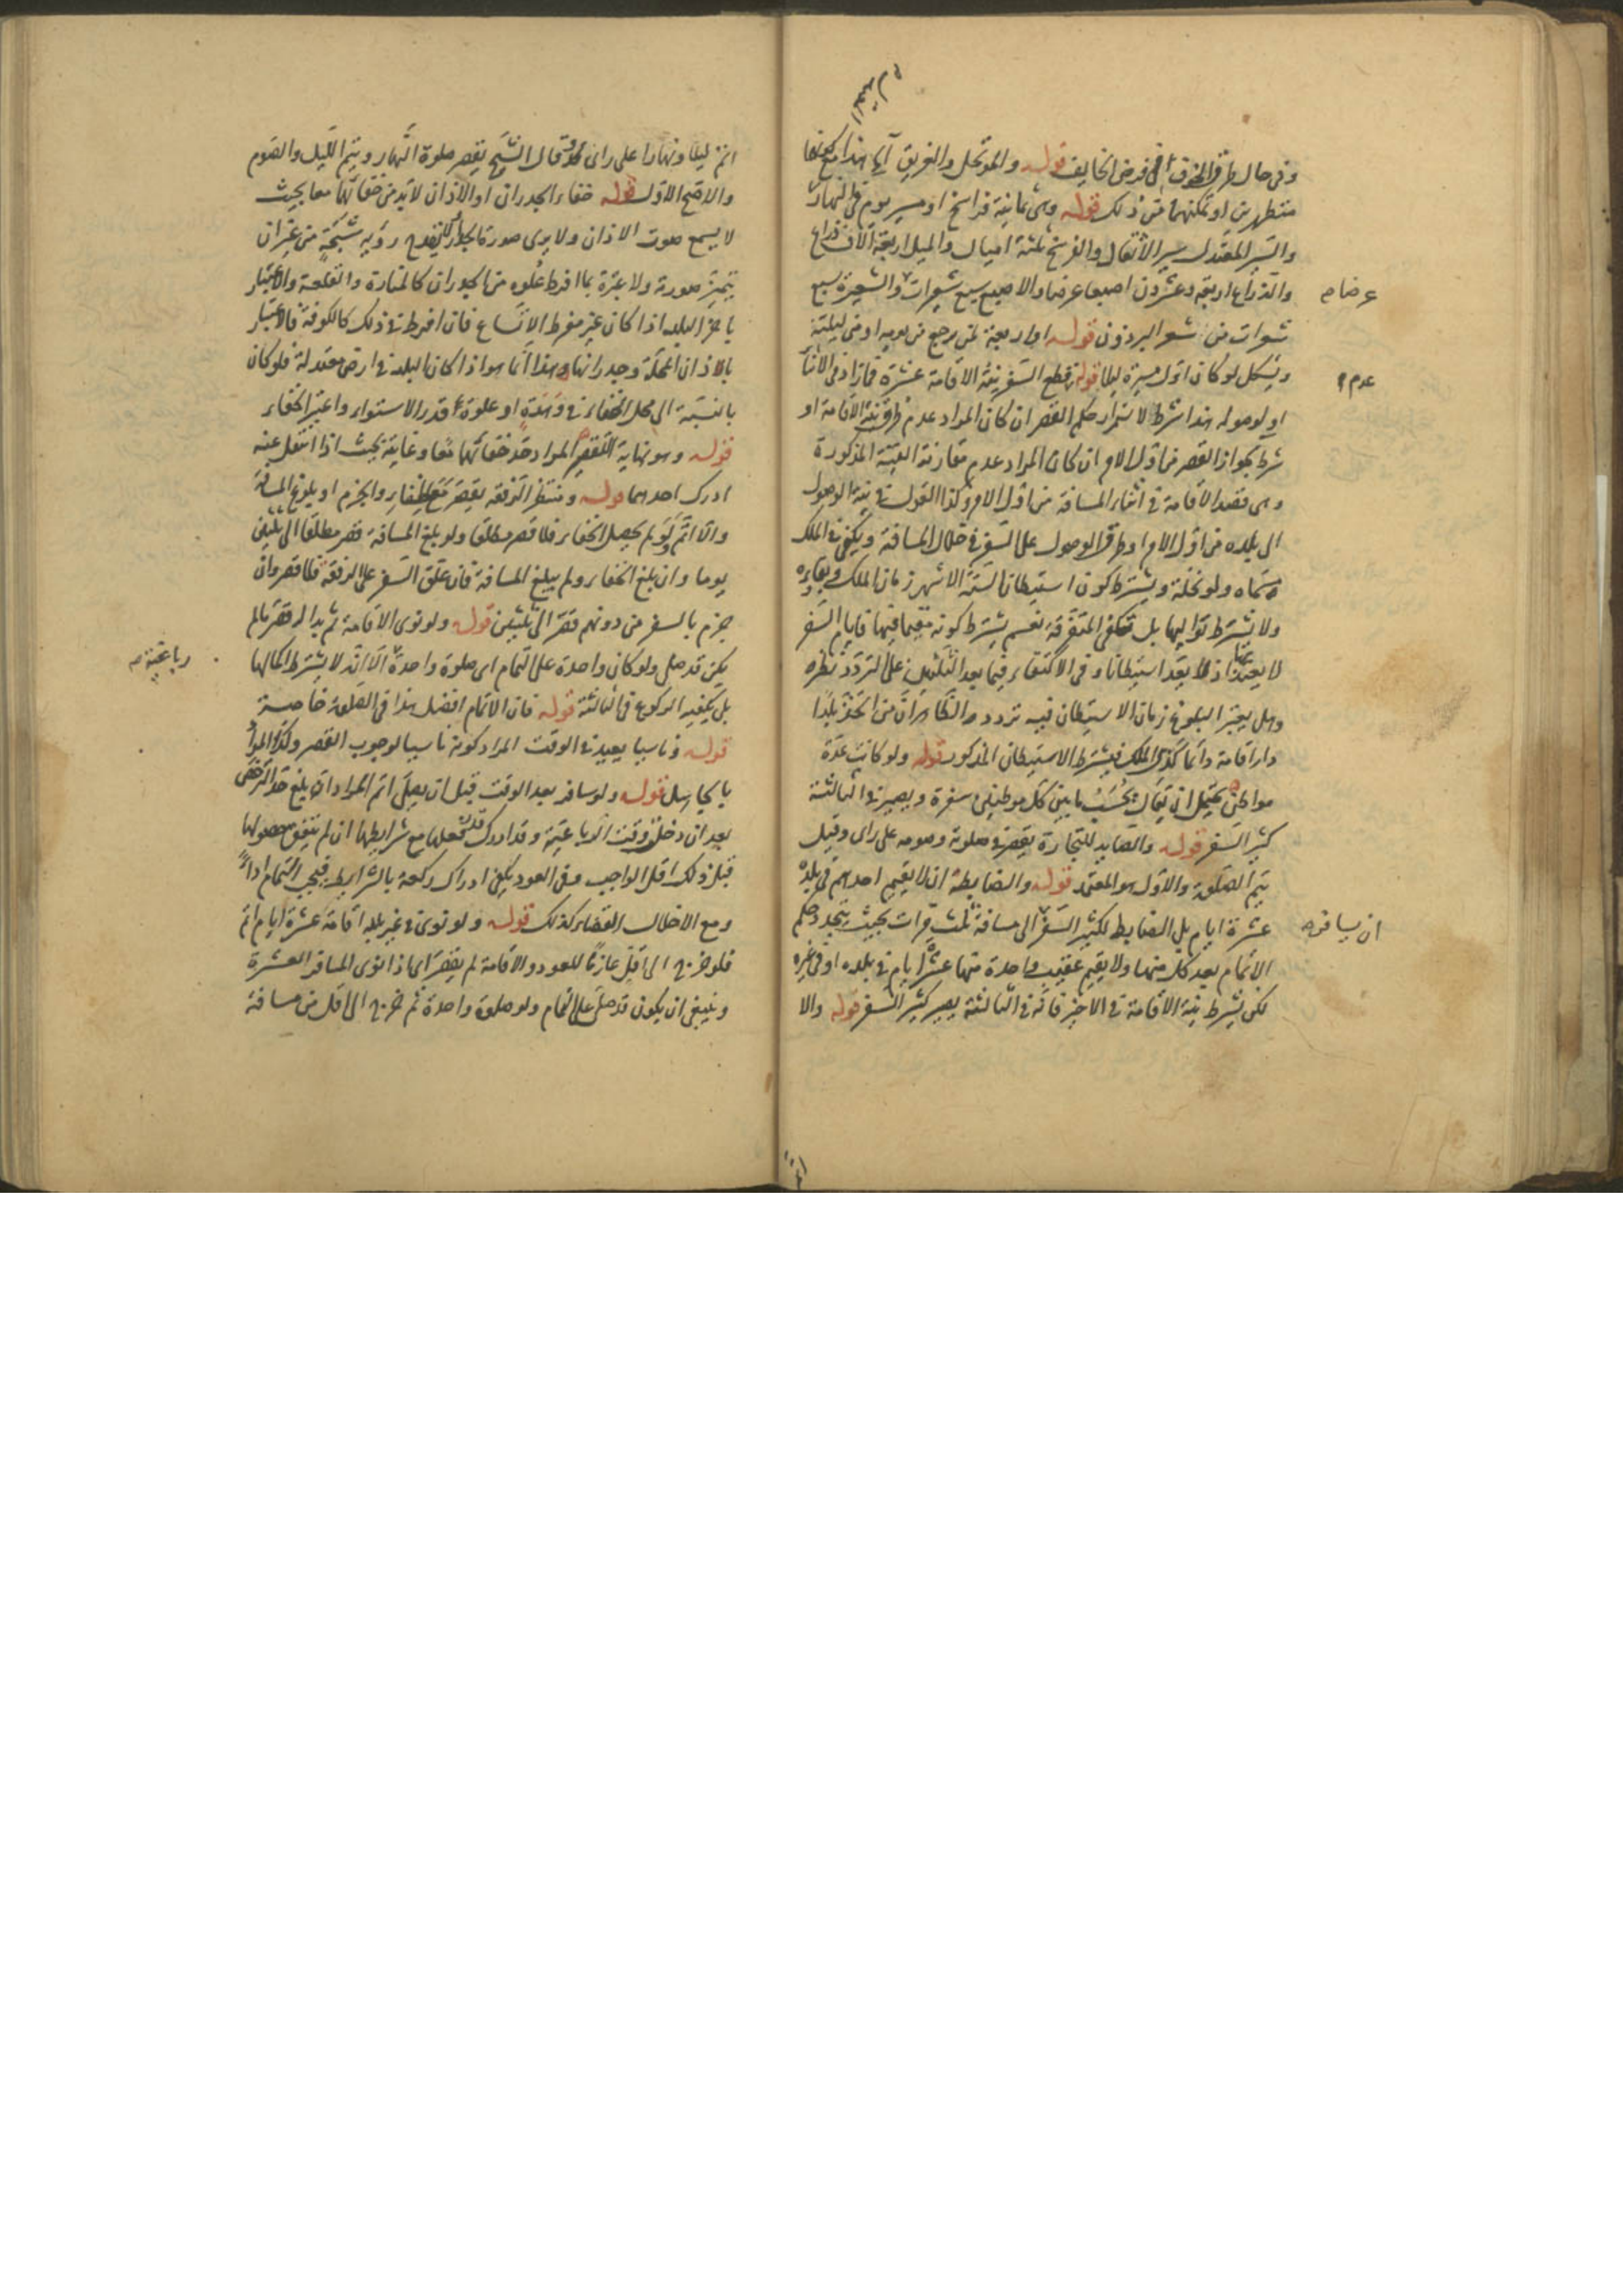 وفى حال طرق الخوف فى فرض الخايف قوله والموتحل والغريق آه هذا مع كونهما
متطهرين او تمكنهما من ذلك قوله وهى ثمانية فراسخ او مسير يوم فى النهار
والسير المعتدل سير الاثقال والفرسخ ثلثة اميال والميل اربعة آلاف ذراع
والذراع اربعة وعشرون اصبعا عرضا والاصبع سبع شعيرات والشعيرة سبع
عرضا م
شعرات من شعر البرذون قوله او اربعة لمن رجع من يومه او من ليلته
ويشكل لو كان اول مسيره ليلا قوله قطع السفر بنية الاقامة عشرة فمازاد فى الاثنا
عدم
او لوصوله هذا شرط لاستمرار حكم القصر ان كان المراد عدم طرق نية الاقامة او
شرط لجواز القصر من اول الامر ان كان المراد عدم مقارنة النية المذكورة
وهى قصد الاقامة فى اثناء المسافة من اول الامر وكذا القول فى نية الوصول
الى بلده من اول الامر او طرق الوصول على السفر فى خلال المسافة ويكفى فى الملك
مسماه ولو نخلة ويشترط كون استيطان الستة الاشهر زمان الملك وبقاءه
ولا يشترط تواليها بل تكفى المتفرقة نعم يشترط كونه مقيما فيها فايام السفر
لا يعتد بها اذ لا يعد استيطانا وفى الاكتفاء فيما بعد الثلثين على التردد نظر
وهل يعتبر البلوغ زمان الاستيطان فيه تردد والظاهر ان من اتخذ بلدا
دار اقامة دائما كذى الملك فيشترط الاستيطان المذكور قوله ولو كانت عدة
مواطن يحتمل ان يقال يحسب ما بين كل موطنين سفرة ويصير فى الثالثة
كثير السفر قوله والصايد للتجارة يقصر فى صلوته وصومه على راى وقيل
يتم الصلوة والاول هو المعتمد قوله والضابطة ان لا يقيم احدهم فى بلده
عشرة ايام بل الضابط لكثير السفر الى مسافة ثلث مرات بحيث يتجدد حكم
ان يسافر م
الاتمام بعد كل منهما ولا يقيم عقيب واحدة منها عشرة ايام فى بلده او فى غيره
لكن يشترط نية الاقامة فى الاخير فانه فى الثالثة يصير كثير السفر قوله والا
اتم ليلا ونهارا على راى وقال الشيخ يقصر صلوة النهار ويتم الليل والصوم
والاصح الاول قوله خفاء الجدران او الاذان لابد من خفائهما معا بحيث
لا يسمع صوت الاذان ولا يرى صورة الجدار فلا يقدح رؤية شبحه من غير ان
يتميز صورته ولا عبرة بما افرط علوه من الجدران كالمنارة والقلعة والاعتبار
باخر البلد اذا كان غير مفرط الاتساع فان افرط فى ذلك كالكوفة فالاعتبار
بالاذان المحلة وجدرانها وهذا انما هو اذا كان البلد فى ارض معتدلة فلو كان
بالنسبة الى محل الخفاء فى وهدة او علوة قدر الاستواء واعتبر الخفاء
قوله وهو نهاية التقصير المراد حد خفائهما معا وغايته بحيث اذا انتقل عنه
ادرك احدهما قوله ومنتظر الرفقة يقصر مع الخفاء والجزم او بلوغ المسافة
والا اتم ولو لم يحصل الخفاء فلا قصر مطلقا ولو بلغ المسافة قصر مطلقا الى ثلثين
يوما وان بلغ الخفاء ولم يبلغ المسافة فان علق السفر على الرفقة فلا قصر وان
جزم بالسفر من دونهم قصر الى ثلثين قوله ولو نوى الاقامة ثم بدا له قصر مالم
يكن قد صلى ولو كان واحدة على التمام اى صلوة واحدة الا انه لا يشترط اكمالها
رباعية م
بل يكفيه الركوع فى الثالثة قوله فان الاتمام افضل هذا فى الصلوة خاصة
قوله وناسيا يعيد فى الوقت المراد كونه ناسيا لوجوب القصر وكذا المراد
بالجاهل قوله ولو سافر بعد الوقت قبل ان يصلى اتم المراد ان بلغ حد الترخص
بعد ان دخل وقت الرباعية وقد ادرك قدر فعلها مع شرايطها ان لم يتفق حصولها
قبل ذلك اقل الواجب وفى العود يكفى ادراك ركعة بالشرايط فيجب التمام اداءً
ومع الاخلال القضاء كذلك قوله ولو نوى فى غير بلده اقامة عشرة ايام اتم
فلو خرج الى اقل عازما للعود والاقامة لم يقصر اى اذا نوى المسافر العشرة
وينبغى ان يكون قد صلى على التمام ولو صلوة واحدة ثم خرج الى اقل من مسافة